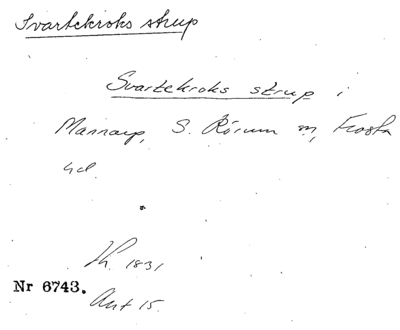 Svartekroks strup
Svartekroks strup i
Mannarp, S. Rörum sn, Frosta
hd.
1831
Nr 6743.
Akt 15.